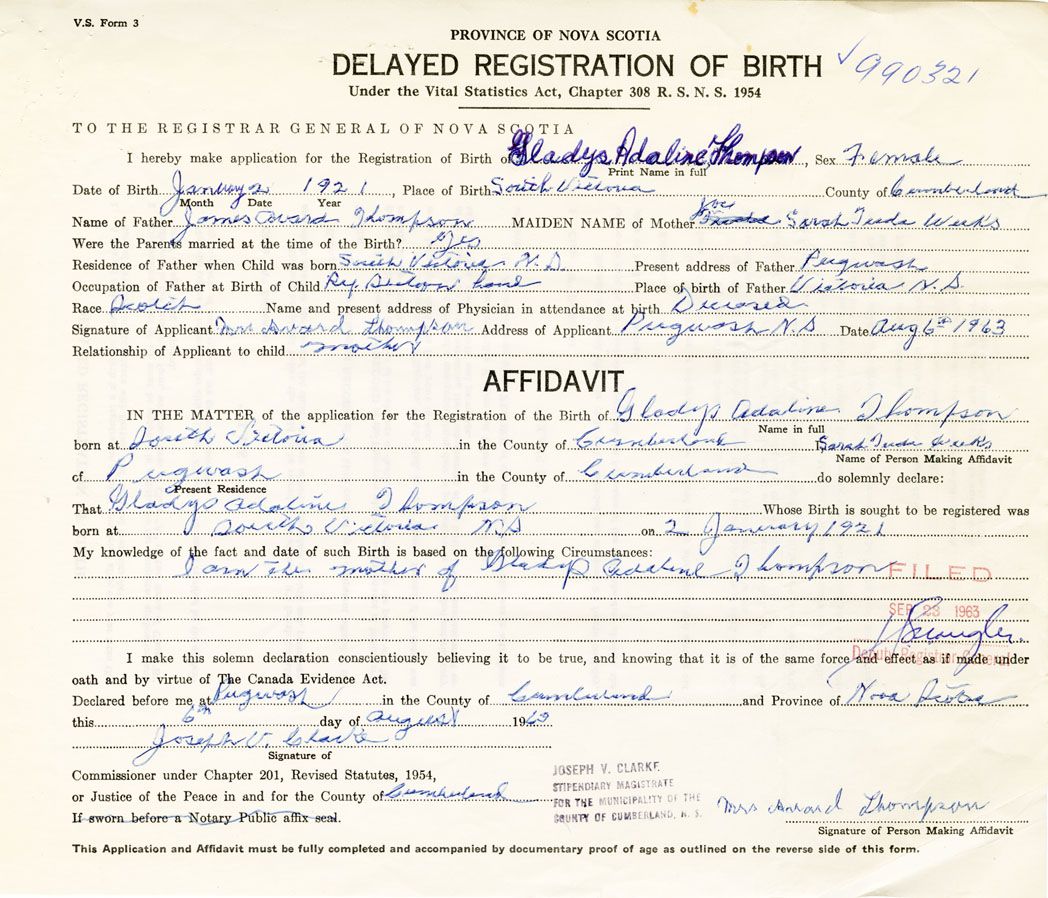 V.S. Form 3
PROVINCE OF NOVA SCOTIA
DELAYED REGISTRATION OF BIRTH
990321
Under the Vital Statistics Act, Chapter 308 R. S. N. S. 1954
TO THE REGISTRAR GENERAL OF NOVA SCOTIA
I hereby make application for the Registration of Birth of Gladys Adaline Thompson, Sex Female
Print Name in full
Date of Birth January 2 1921, Place of Birth South Victoria County of Cumberland
Month Date Year
Name of Father James Avard Thompson MAIDEN NAME of Mother Sarah Tuda Weeks
Were the Parents married at the time of the Birth? Yes
Residence of Father when Child was born South Victoria N.S. Present address of Father Pugwash
Occupation of Father at Birth of Child Ry Section Place of birth of Father Victoria N.S.
Race Scotch Name and present address of Physician in attendance at birth Decesed
Signature of Applicant Mrs Avard Thompson Address of Applicant Pugwash N.S Date Aug 6th 1963
Relationship of Applicant to child mother
AFFIDAVIT
IN THE MATTER of the application for the Registration of the Birth of Gladys Adaline Thompson
Name in full
born at South Victoria in the County of Cumberland Sarah Tuda Weeks
Name of Person Making Affidavit
of Pugwash in the County of Cumberland do solemnly declare:
Present Residence
That Gladys Adaline Thompson Whose Birth is sought to be registered was
born at South Victoria N.S on 2 January 1921
My knowledge of the fact and date of such Birth is based on the following Circumstances:
I am the mother of Gladys Adaline Thompson
FILED
SEP 23 1963
Deputy Registrar General
I make this solemn declaration conscientiously believing it to be true, and knowing that it is of the same force and effect as if made under
oath and by virtue of The Canada Evidence Act.
Declared before me at Pugwash in the County of Cumberland and Province of Nova Scotia
this 6th day of August 1963
Joseph V. Clarke
Signature of
Commissioner under Chapter 201, Revised Statutes, 1954,
or Justice of the Peace in and for the County of Cumberland
If sworn before a Notary Public affix seal.
JOSEPH V. CLARKE
STIPENDIARY MAGISTRATE
FOR THE MUNICIPALITY OF THE
COUNTY OF CUMBERLAND, N. S.
Mrs Avard Thompson
Signature of Person Making Affidavit
This Application and Affidavit must be fully completed and accompanied by documentary proof of age as outlined on the reverse side of this form.